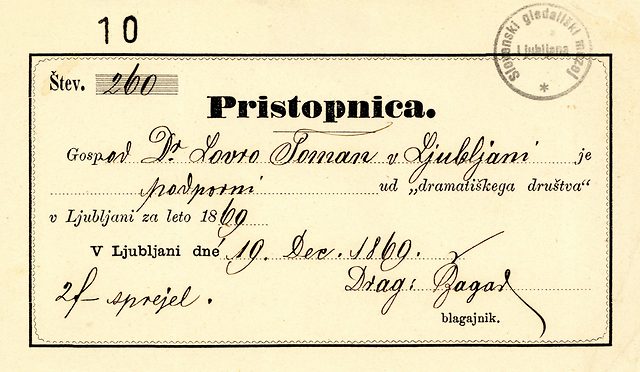 10
Slovenski gledališki muzej
Ljubljana
*
Štev. 260
Pristopnica.
Gospod Dr Lovro Toman v Ljubljani je
podporni ud „dramatiškega društva“
v Ljubljani za leto 1869
V Ljubljani dné 19. Dec. 1869.
Drag: Žagar
2f– sprejel.
blagajnik.